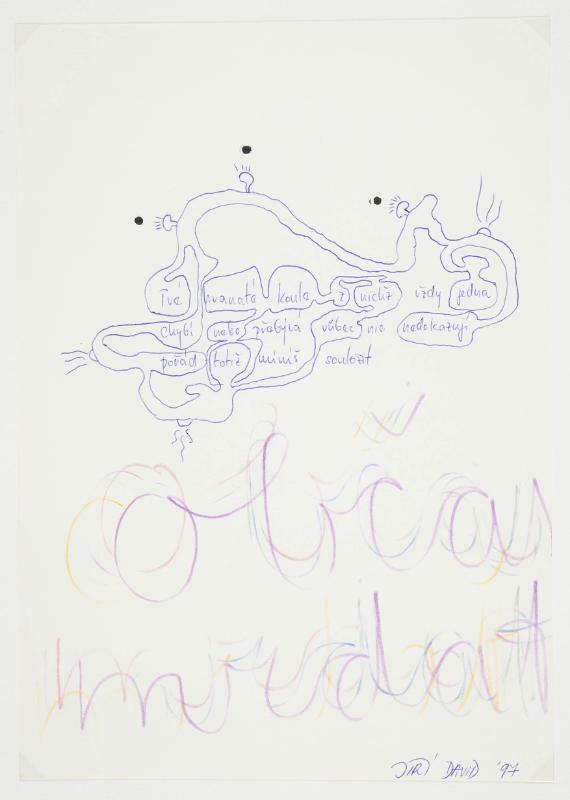 Tvé hranaté koule z nichž vždy jedna
chybí nebo zbývá vůbec nic nedokazují
pořád totiž míníš souložit
občas
mrdat
JIŘÍ DAVID '97